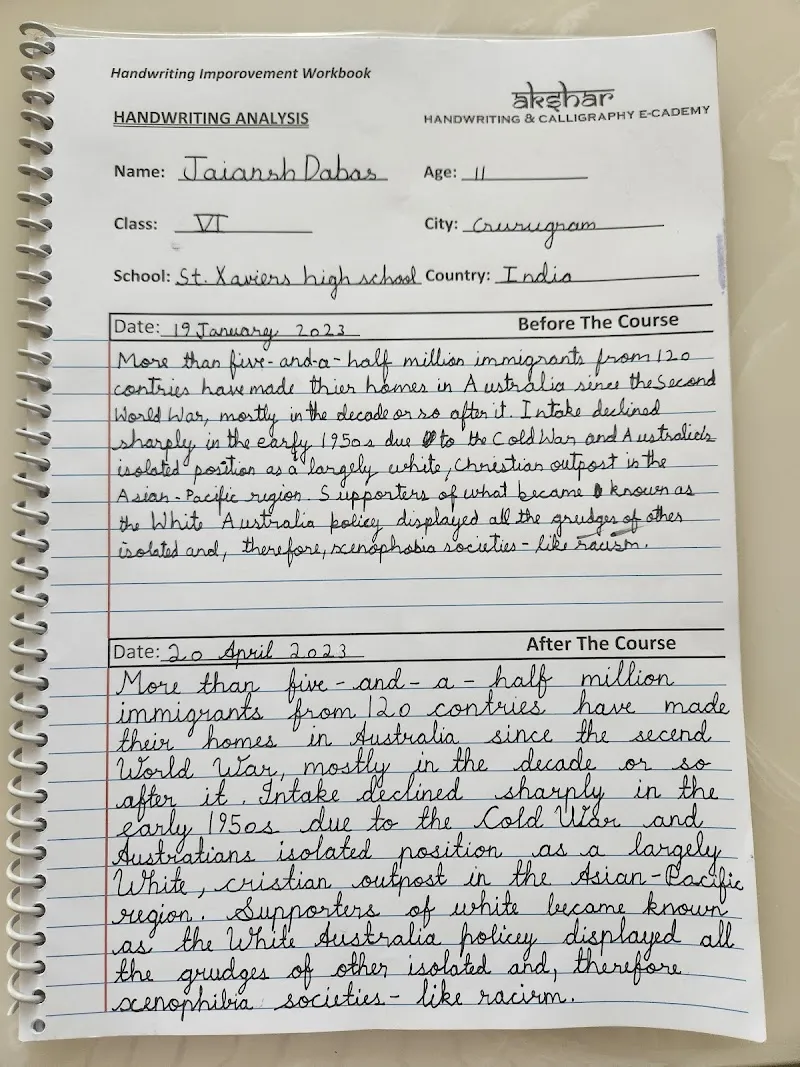 Handwriting Imporovement Workbook
akshar
HANDWRITING & CALLIGRAPHY E-CADEMY
HANDWRITING ANALYSIS
Name: Jaiansh Dabas Age: 11
Class: VI City: Gurugram
School: St. Xaviers high school Country: India
Date: 19 January 2023 Before The Course
More than five-and-a-half million immigrants from 120
contries have made thier homes in Australia since the Second
World War, mostly in the decade or so after it. Intake declined
sharply in the earfy 1950s due to the Cold War and Australia's
isolated position as a largely white, Christian outpost in the
Asian-Pacific region. Supporters of what became known as
the White Australia policy displayed all the grudges of other
isolated and, therefore, xenophobia societies - like racism.
Date: 20 April 2023 After The Course
More than five-and-a-half million
immigrants from 120 contries have made
their homes in Australia since the secend
World War, mostly in the decade or so
after it. Intake declined sharply in the
early 1950s due to the Cold War and
Austratians isolated position as a largely
White, cristian outpost in the Asian-Pacific
region. Supporters of white became known
as the White Australia policey displayed all
the grudges of other isolated and, therefore
xenophibia societies - like racirm.